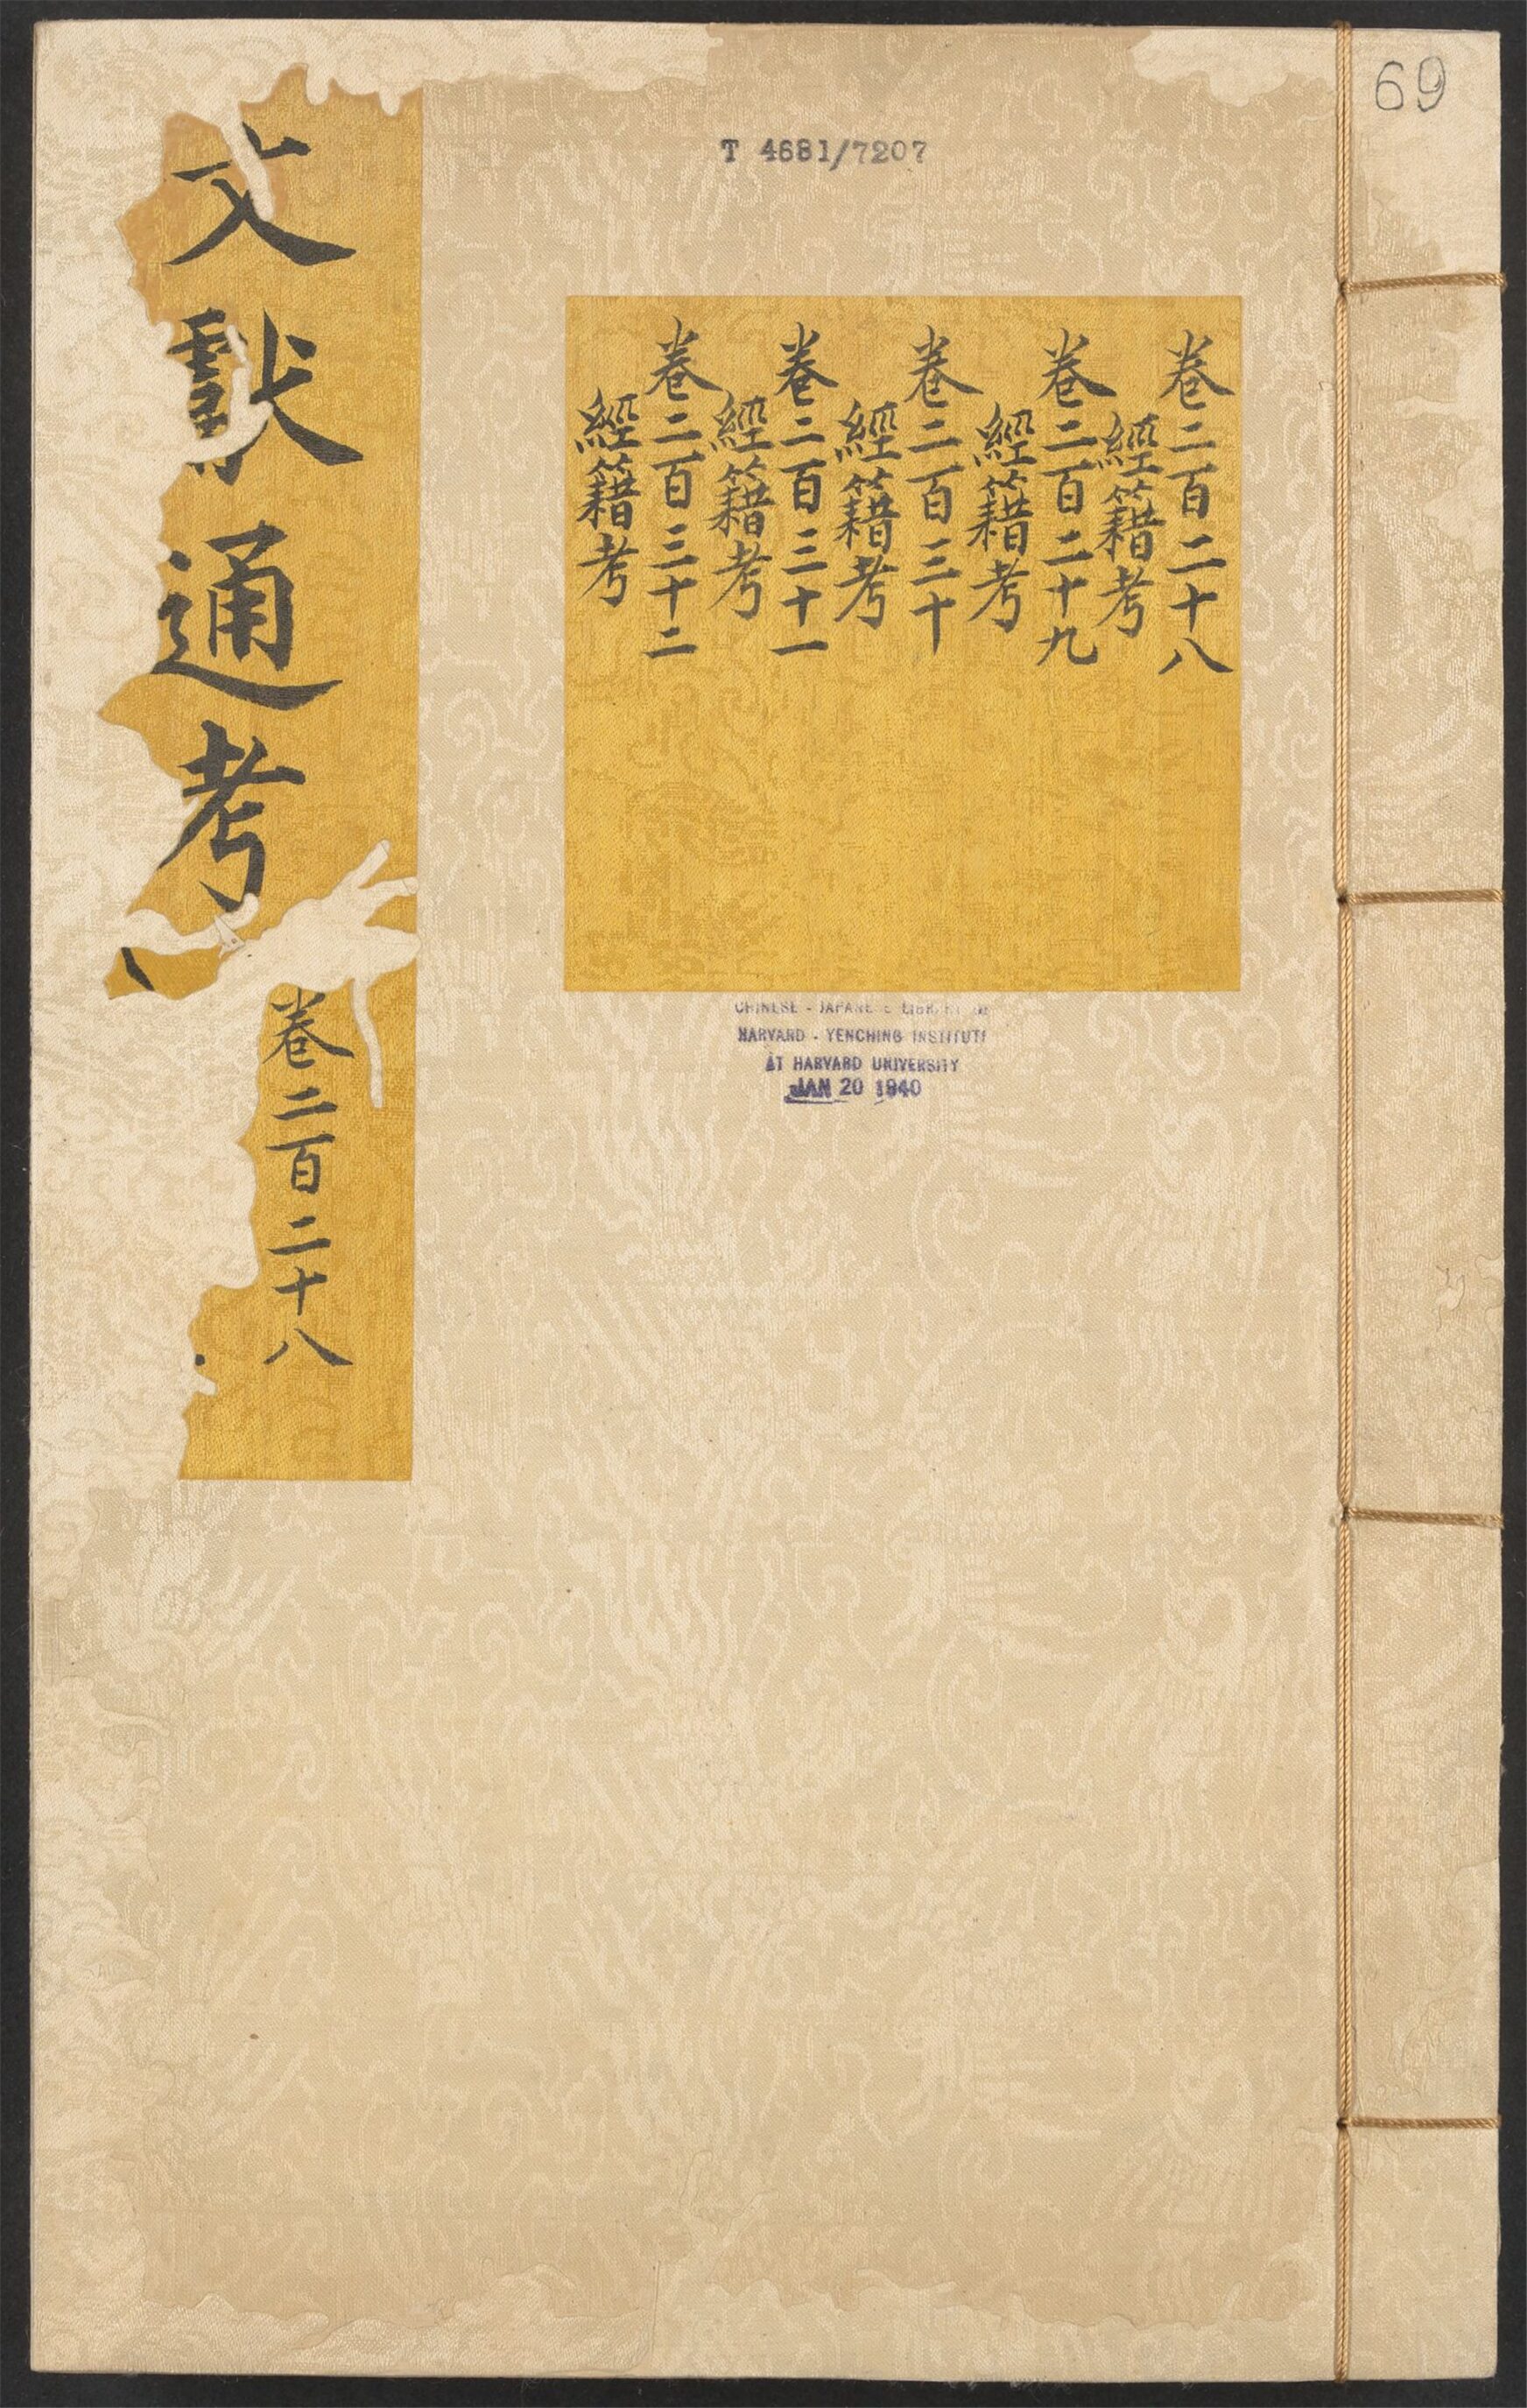 69
T 4681/7207
卷二百二十八
經籍考
卷二百二十九
經籍考
卷二百三十
經籍考
卷二百三十一
經籍考
卷二百三十二
經籍考
文獻通考
卷二百二十八
CHINESE - JAPANESE LIBRARY
HARVARD - YENCHING INSTITUTE
AT HARVARD UNIVERSITY
JAN 20 1940